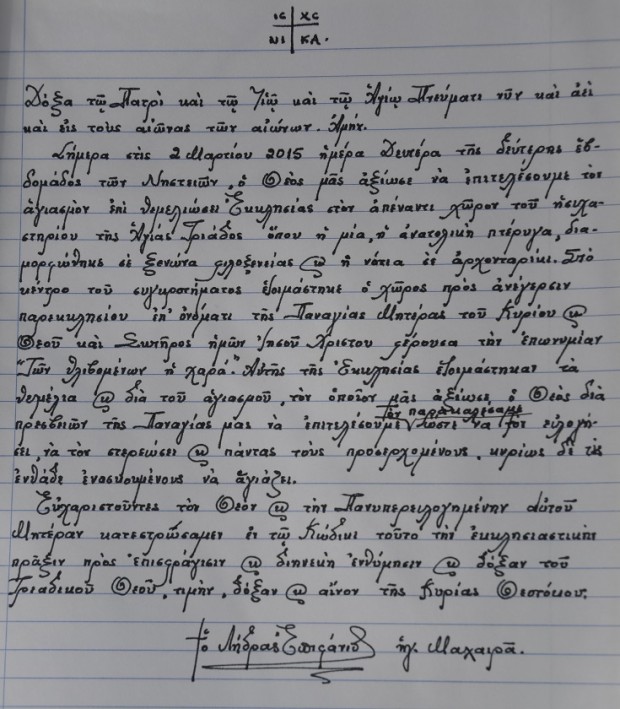 ΙC ΧC
ΝΙ ΚΑ.
Δόξα τῷ Πατρὶ καὶ τῷ Υἱῷ καὶ τῷ Ἁγίῳ Πνεύματι νῦν καὶ ἀεὶ
καὶ εἰς τοὺς αἰῶνας τῶν αἰώνων. Ἀμήν.
Σήμερα στὶς 2 Μαρτίου 2015 ἡμέρα Δευτέρα τῆς δεύτερης ἑβ-
δομάδος τῶν Νηστειῶν, ὁ Θεὸς μᾶς ἀξίωσε νὰ ἐπιτελέσουμε τὸν
ἁγιασμὸν ἐπὶ θεμελιώσει Ἐκκλησίας στὸν ἀπέναντι χῶρον τοῦ ἡσυχα-
στηρίου τῆς Ἁγίας Τριάδος ὅπου ἡ μία, ἡ ἀνατολικὴ πτέρυγα, δια-
μορφώθηκε σὲ ξενώνα φιλοξενείας ϗ ἡ νότια σὲ ἀρχονταρίκι. Στὸ
κέντρο τοῦ συγκροτήματος ἑτοιμάστηκε ὁ χῶρος πρὸς ἀνέγερσιν
παρεκκλησίου ἐπ' ὀνόματι τῆς Παναγίας Μητέρας τοῦ Κυρίου ϗ
Θεοῦ καὶ Σωτῆρος ἡμῶν Ἰησοῦ Χριστοῦ φέρουσα τὴν ἐπωνυμίαν
"Τῶν θλιβομένων ἡ χαρά". Αὐτῆς τῆς Ἐκκλησίας ἑτοιμάστηκαν τὰ
θεμέλια ϗ διὰ τοῦ ἁγιασμοῦ, τὸν ὁποῖον μᾶς ἀξίωσε ὁ Θεὸς διὰ
πρεσβειῶν τῆς Παναγίας μας νὰ ἐπιτελέσουμε Τὸν παρακαλέσαμε ὥστε νὰ τὸν εὐλογή-
σει, νὰ τὸν στερεώσει ϗ πάντας τοὺς προσερχομένους, κυρίως δὲ τοὺς
ἐνθάδε ἐνασκουμένους νὰ ἁγιάζει.
Εὐχαριστοῦντες τὸν Θεὸν ϗ τὴν Πανυπερευλογημένην αὐτοῦ
Μητέραν κατεστρώσαμεν ἐν τῷ Κώδικι τοῦτο τὴν ἐκκλησιαστικὴν
πρᾶξιν πρὸς ἐπισφράγισιν ϗ διηνεκῆ ἐνθύμησιν ϗ δόξαν τοῦ
Τριαδικοῦ Θεοῦ, τιμὴν, δόξαν ϗ αἶνον τῆς Κυρίας Θεοτόκου.
† ὁ Λήδρας Ἐπιφάνιος ἡγ. Μαχαιρᾶ.